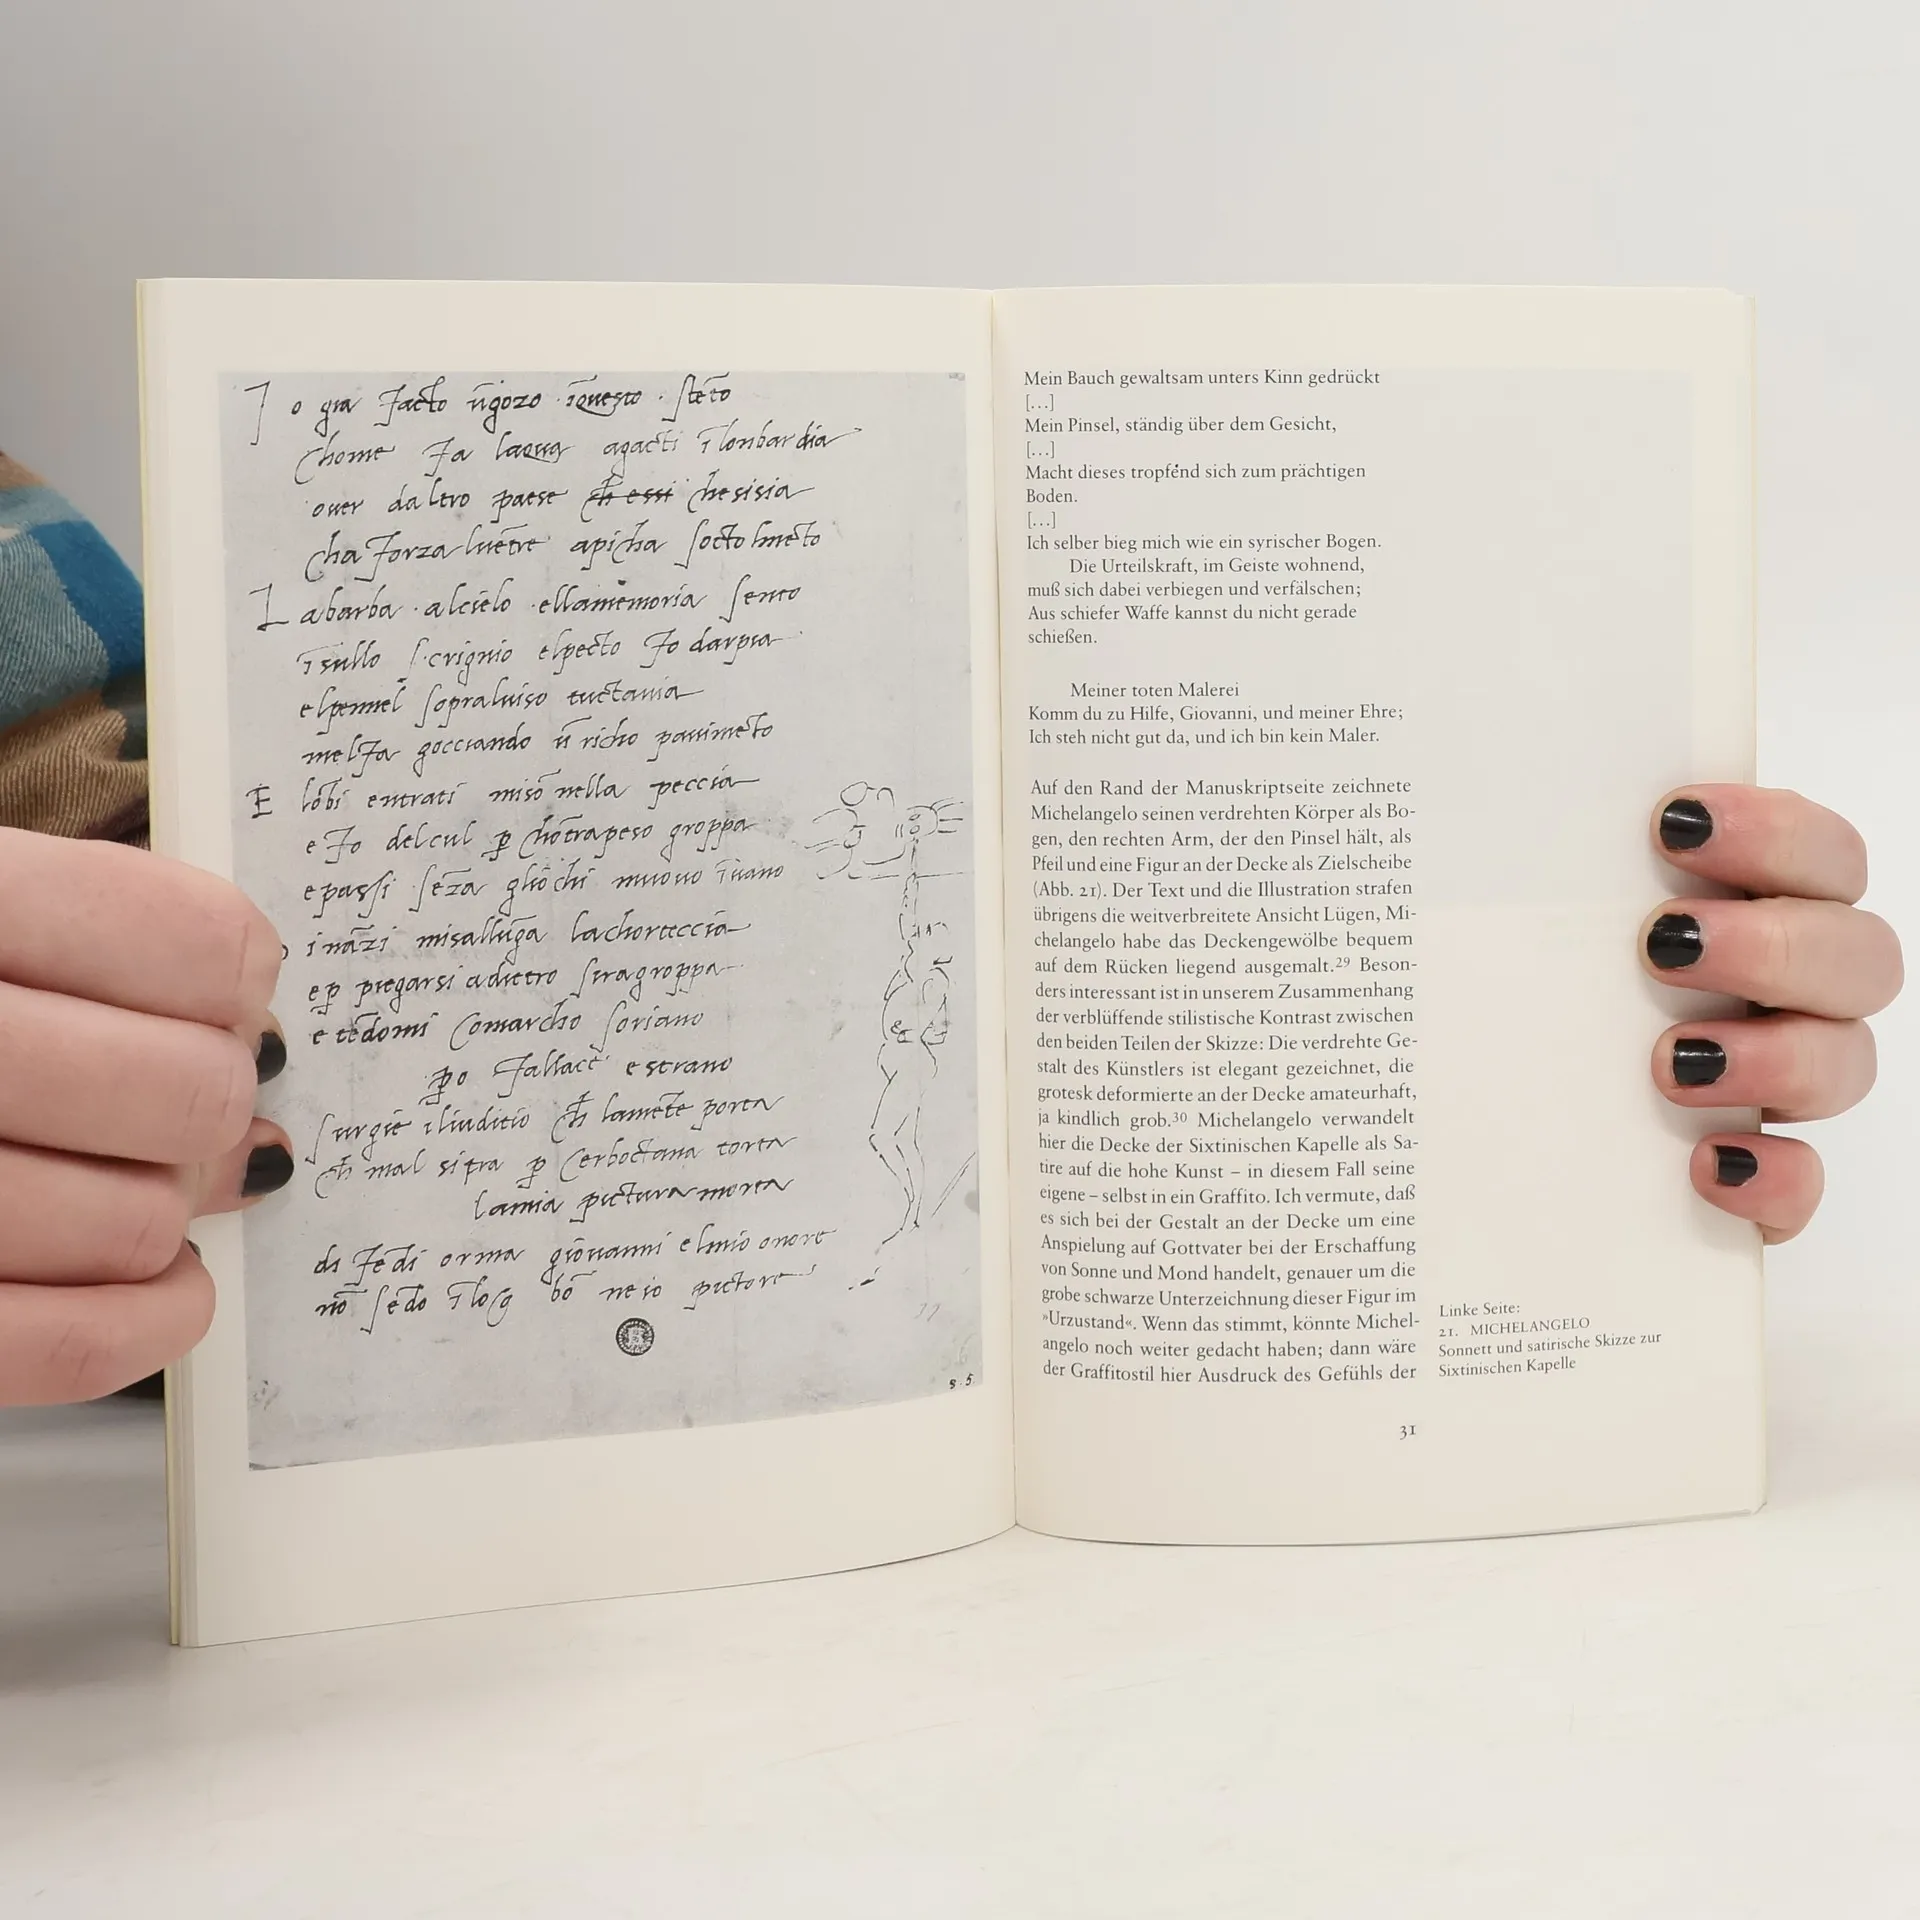 Io gia facto ūgozo īquesto stēto
chome fa laqua agacti ī lonbardia
over daltro paese ch essi chesisia
cha forza lvētre apicha soctolmēto
Labarba alcielo ellamemoria sento
īsullo scrignio elpecto fo darpia
elpennel sopralviso tuctavia
melfa gocciando ū richo pavimēto
E lōbi entrati misō nella peccia
e fo delcul p chōtrapeso groppa
epassi sēza gliochi muovo īvano
ināzi misallūga lachorteccia
ep piegarsi adietro siragroppa
e tēdomi comarcho soriano
po fallace estrano
surgie iliuditio ch lamēte porta
ch mal sitra p cerboctana torta
lamia pictura morta
di fēdi orma giovanni elmio onore
nō sēdo ī log bō ne io pictore
8.5
Mein Bauch gewaltsam unters Kinn gedrückt
[...]
Mein Pinsel, ständig über dem Gesicht,
[...]
Macht dieses tropfend sich zum prächtigen
Boden.
[...]
Ich selber bieg mich wie ein syrischer Bogen.
Die Urteilskraft, im Geiste wohnend,
muß sich dabei verbiegen und verfälschen;
Aus schiefer Waffe kannst du nicht gerade
schießen.
Meiner toten Malerei
Komm du zu Hilfe, Giovanni, und meiner Ehre;
Ich steh nicht gut da, und ich bin kein Maler.
Auf den Rand der Manuskriptseite zeichnete
Michelangelo seinen verdrehten Körper als Bo-
gen, den rechten Arm, der den Pinsel hält, als
Pfeil und eine Figur an der Decke als Zielscheibe
(Abb. 21). Der Text und die Illustration strafen
übrigens die weitverbreitete Ansicht Lügen, Mi-
chelangelo habe das Deckengewölbe bequem
auf dem Rücken liegend ausgemalt.29 Beson-
ders interessant ist in unserem Zusammenhang
der verblüffende stilistische Kontrast zwischen
den beiden Teilen der Skizze: Die verdrehte Ge-
stalt des Künstlers ist elegant gezeichnet, die
grotesk deformierte an der Decke amateurhaft,
ja kindlich grob.30 Michelangelo verwandelt
hier die Decke der Sixtinischen Kapelle als Sa-
tire auf die hohe Kunst – in diesem Fall seine
eigene – selbst in ein Graffito. Ich vermute, daß
es sich bei der Gestalt an der Decke um eine
Anspielung auf Gottvater bei der Erschaffung
von Sonne und Mond handelt, genauer um die
grobe schwarze Unterzeichnung dieser Figur im
»Urzustand«. Wenn das stimmt, könnte Michel-
angelo noch weiter gedacht haben; dann wäre
der Graffitostil hier Ausdruck des Gefühls der
Linke Seite:
21. MICHELANGELO
Sonnett und satirische Skizze zur
Sixtinischen Kapelle
31